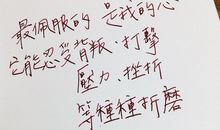 最佩服的 是我的心
它能忍受背叛、打擊
壓力、挫折
等種種折磨